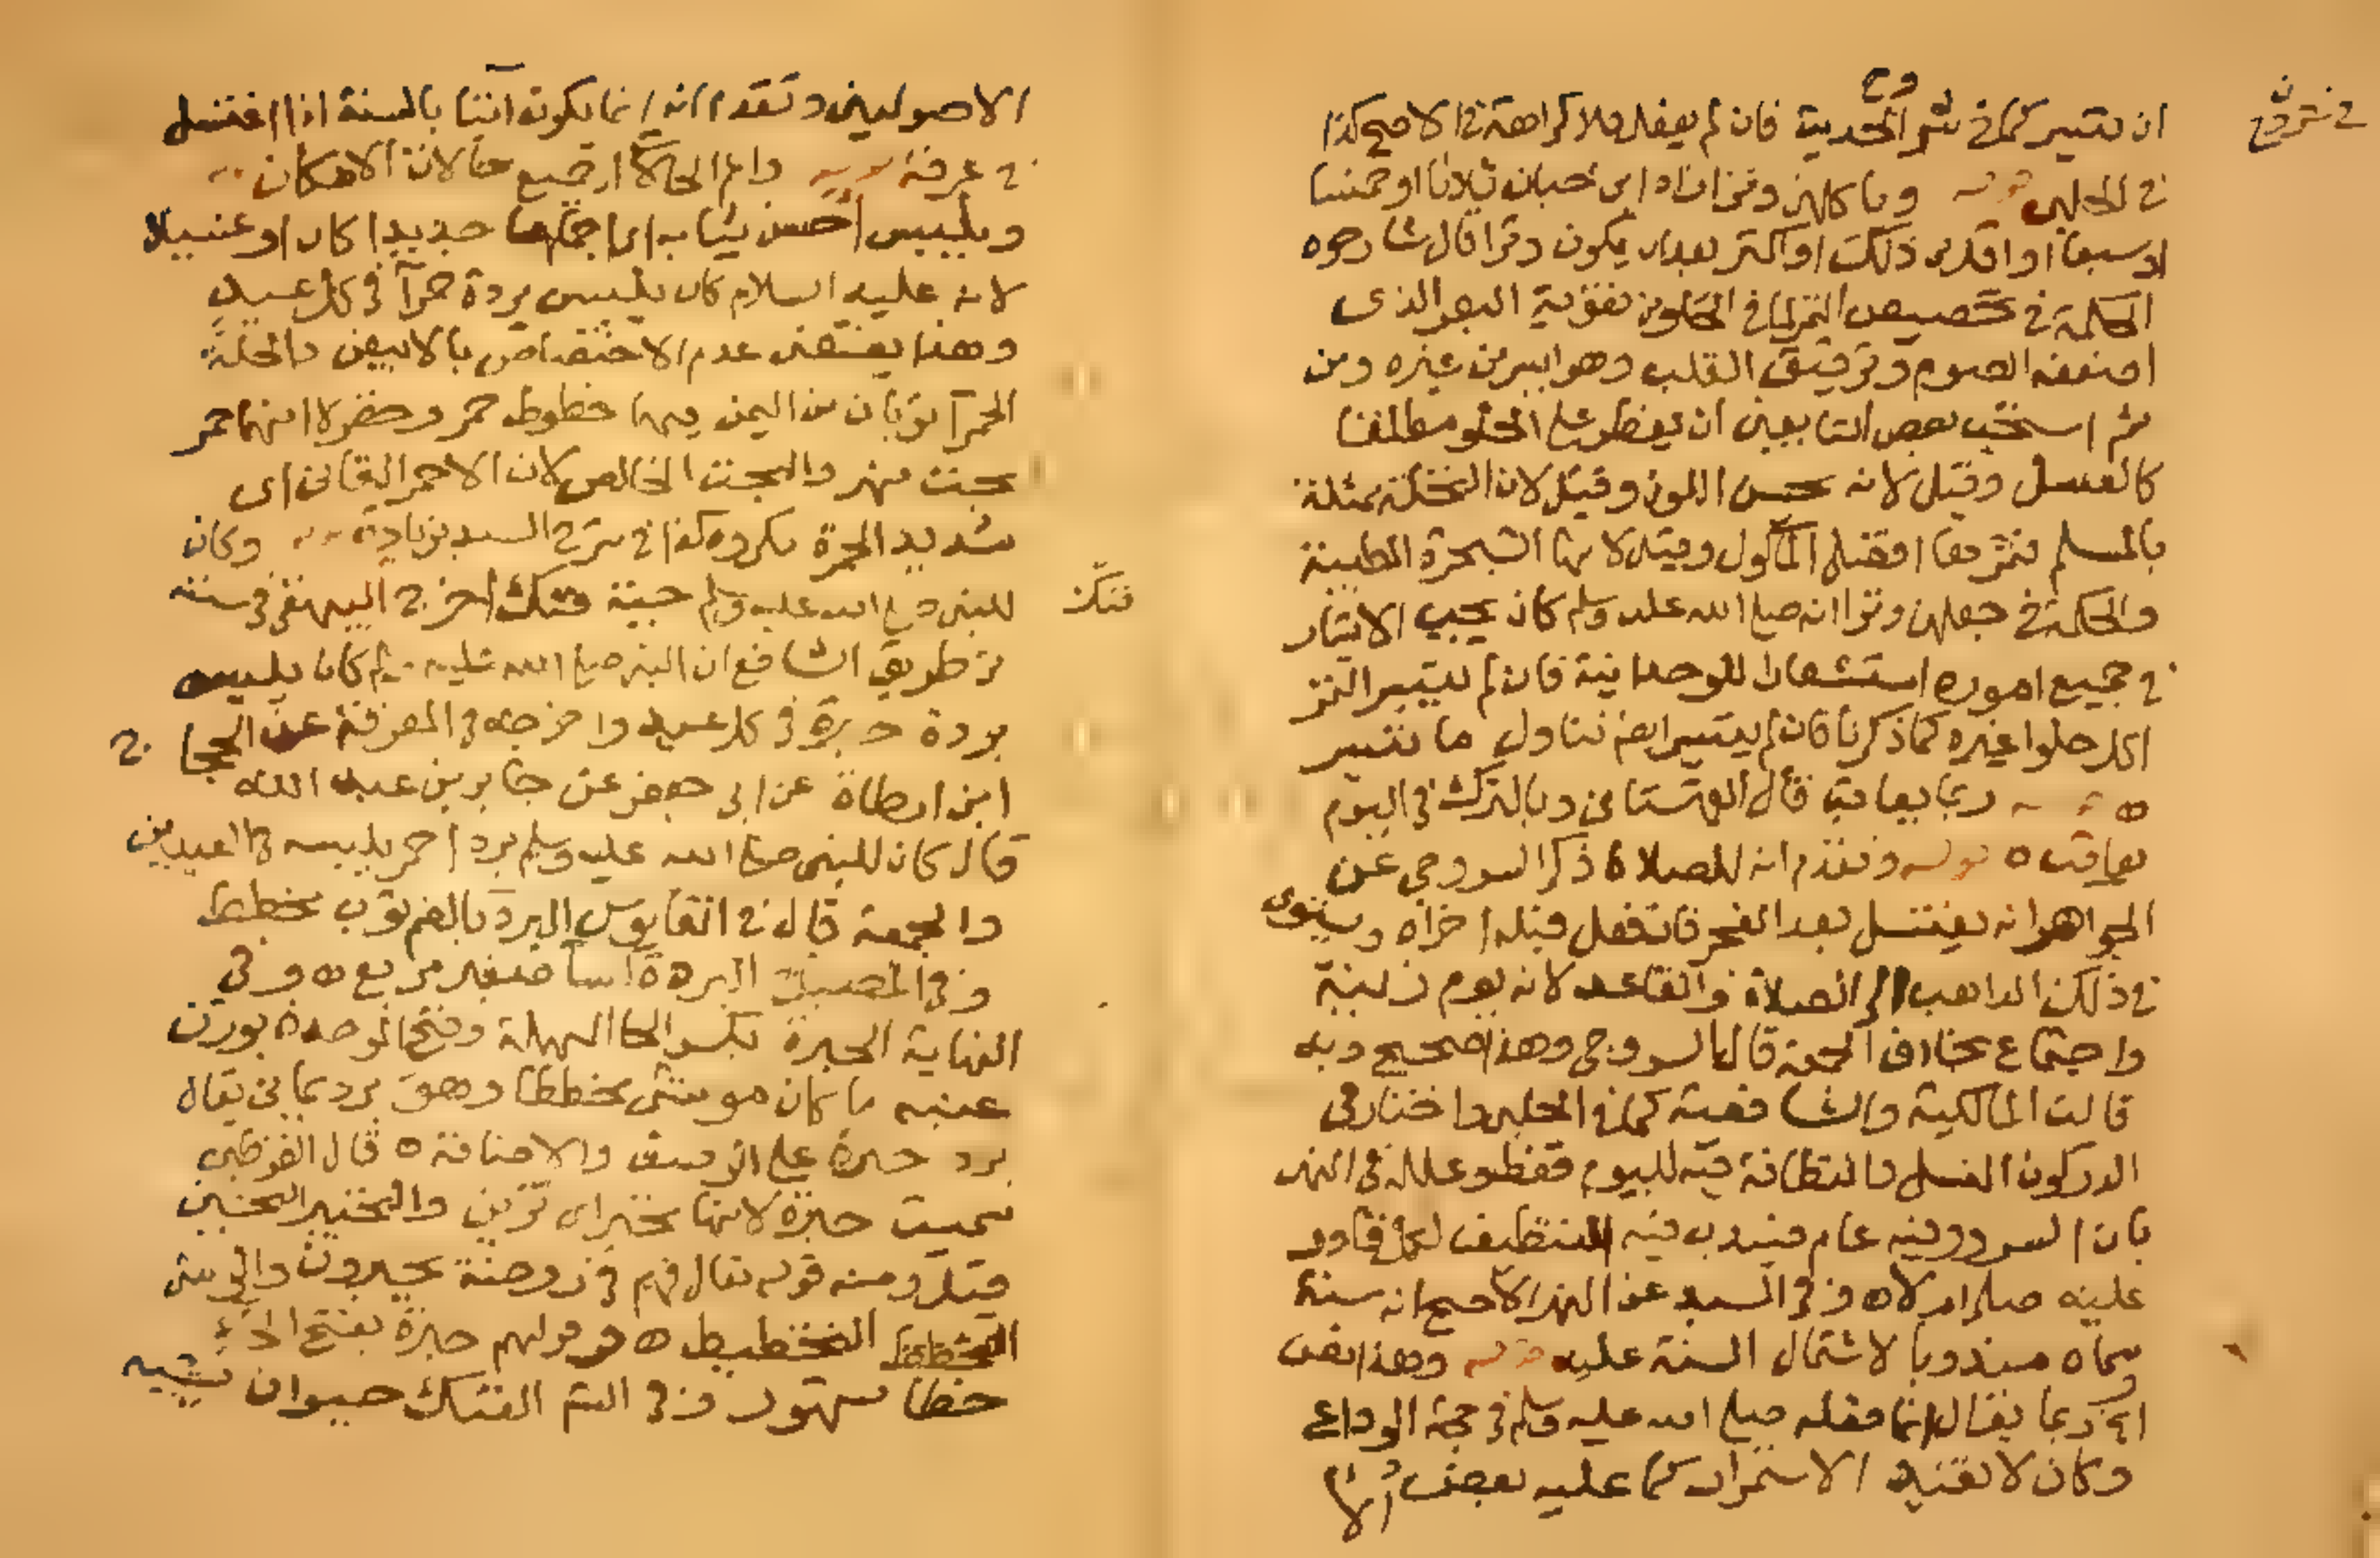 ان تيسر كما في شرح الحديث فان لم يفعله فلا كراهة في الاصح كذا
في الحلبي قوله وياكلهن وترا زاد ابن حبان ثلاثا او خمسا
او سبعا او اقل من ذلك او اكثر بعد ان يكون وترا قال شارحوه
الحكمة في تخصيص التمر لما في الحلو من تقوية البصر الذي
اضعفه الصوم وترقيق القلب وهو ايسر من غيره ومن
ثم استحب بعض التابعين ان يفطر على الحلو مطلقا
كالعسل وقيل لانه حسن اللون وقيل لان النخلة ممثلة
بالمسلم فتمرها افضل المأكول وقيل لانها الشجرة الطيبة
والحكمة في جعلهن وترا انه صلى الله عليه وسلم كان يحب الايتار
في جميع اموره استشعارا للوحدانية فان لم يتيسر التمر
اكل حلوا غيره كما ذكرنا فان لم يتيسر ايضا تناول ما تيسر
ربما يعاقب قال القهستاني وبالترك في اليوم
يعاقب ه قوله وتقدم انه للصلاة ذكر السروجي عن
الجواهر انه يغتسل بعد الفجر فان فعل قبله اجزاه ويستوي
في ذلك الذاهب الى الصلاة والقاعد لانه يوم زينة
واجتماع بخلاف الجمعة قال السروجي وهذا صحيح وبه
قالت المالكية والشافعية كما في الحلبي واختار في
الدر كون الغسل والنظافة فيه لليوم فقط وعلله في النهر
بان السرور فيه عام فيندب فيه التنظيف لكل قادر
عليه صلى ام لا ه وفي السيد عن النهر الاصح انه سنة
سماه مندوبا لاشتمال السنة عليه قوله وهذا نص
ربما يقال انما فعله صلى الله عليه وسلم في حجة الوداع
وكان لا تفيد الاستمرار كما عليه بعض
في شرح
الاصوليين وتقدم انه انما يكون اتيا بالسنة اذا اغتسل
في عرفة قوله
ويلبس احسن ثيابه اي اجملها جديدا كان او غسيلا
لانه عليه السلام كان يلبس بردة حمرآ في كل عيد
وهذا يقتضي عدم الاختصاص بالابيض والحلة
الحمرآ ثوبان من اليمن فيهما خطوط حمر وخضر لا انهما حمر
بحت والبحت الخالص لان الاحمر القاني اي
شديد الحمرة مكروه كذا في شرح السيد بزيادة قوله وكان
للنبي صلى الله عليه وسلم جبة فنك اخرج البيهقي في سننه
من طريق الشافعي ان النبي صلى الله عليه وسلم كان يلبس
بردة حبرة في كل عيد واخرجه في المعرفة عن الحجاج
ابن ارطاة عن ابي جعفر عن جابر بن عبد الله
قال كان للنبي صلى الله عليه وسلم برد احمر يلبسه في العيدين
والجمعة قال في القاموس البرد بالضم ثوب مخطط
وفي المصباح البردة كسآ صغير مربع ه وفي
النهاية الحبرة بكسر الحا المهملة وفتح الموحدة بوزن
عنبه ما كان موشى مخططا وهو برد يماني يقال
برد حبرة على الوصف والاضافة ه قال القرطبي
سميت حبرة لانها تحبر اي تزين والتحبير التحسين
قيل ومنه قوله تعالى فهم في روضة يحبرون
التخطيط ه وقولهم حبرة بفتح الحآء
خطا مشهور وفي الفنك حيوان يشبه
فنك